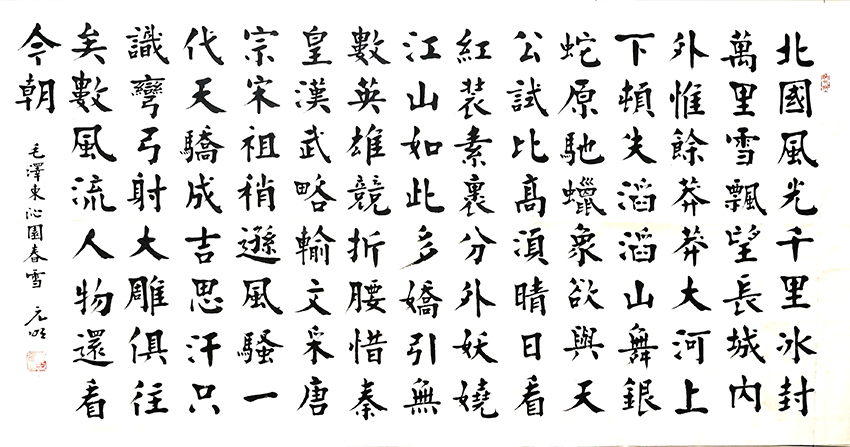 北國風光千里冰封
萬里雪飄望長城內
外惟餘莽莽大河上
下頓失滔滔山舞銀
蛇原馳蠟象欲與天
公試比高須晴日看
紅装素裹分外妖嬈
江山如此多嬌引無
數英雄競折腰惜秦
皇漢武略輸文采唐
宗宋祖稍遜風騷一
代天驕成吉思汗只
識彎弓射大雕俱往
矣數風流人物還看
今朝
毛澤東沁園春雪